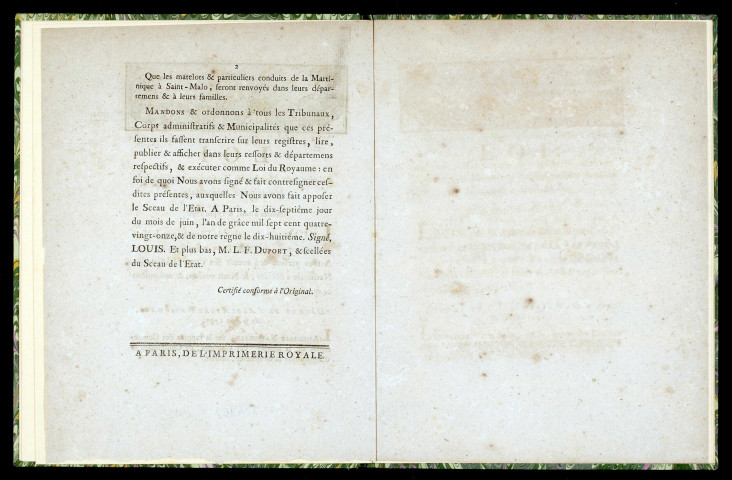 2
Que les matelots & particuliers conduits de la Marti-
nique à Saint-Malo, seront renvoyés dans leurs dépar-
temens & à leurs familles.
MANDONS & ordonnons à tous les Tribunaux,
Corps administratifs & Municipalités que ces pré-
sentes ils fassent transcrire sur leurs registres, lire,
publier & afficher dans leurs ressorts & départemens
respectifs, & exécuter comme Loi du Royaume : en
foi de quoi Nous avons signé & fait contresigner ces-
dites présentes, auxquelles Nous avons fait apposer
le Sceau de l'Etat. A Paris, le dix-septiéme jour
du mois de juin, l'an de grâce mil sept cent quatre-
vingt-onze, & de notre règne le dix-huitiéme. Signé,
LOUIS. Et plus bas, M. L. F. DUPORT, & scellées
du Sceau de l'Etat.
Certifié conforme à l'Original.
A PARIS, DE L'IMPRIMERIE ROYALE.